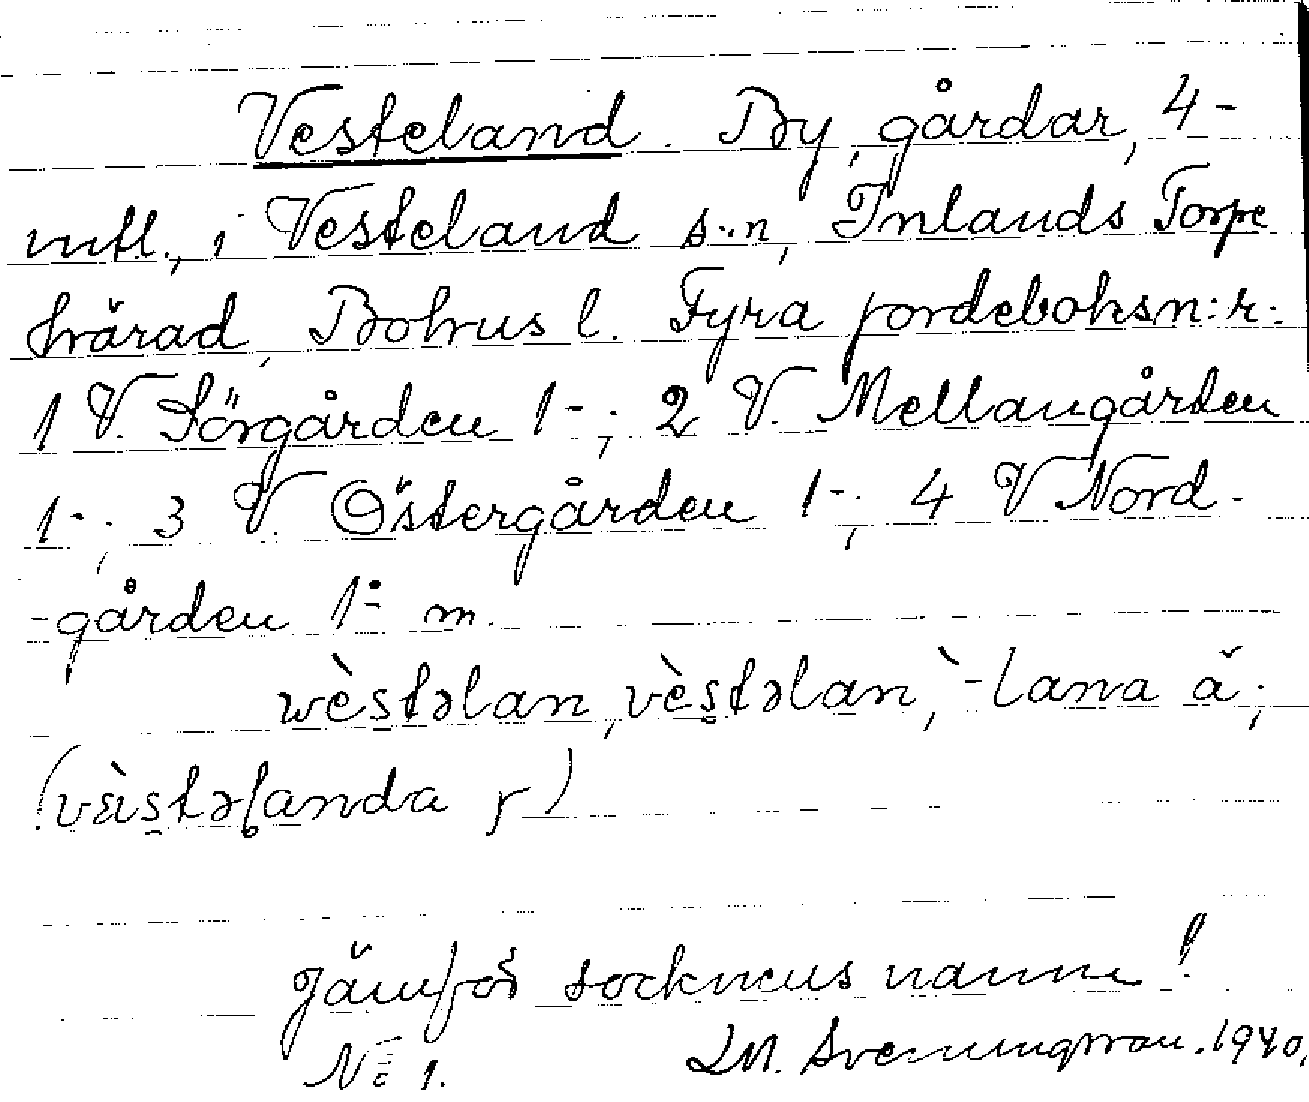 Vesteland. By, gårdar, 4-
mtl., i Vesteland s:n, Inlands Torpe
härad, Bohus l. Fyra jordeboksn:r.
1 V. Sörgården 1-; 2 V. Mellangården
1-; 3 V. Östergården 1-; 4 V Nord-
-gården 1- m.
wèstəlan, vèstəlan, -lana ä;
(vàistəlanda r)
Jämför socknens namn!
No 1. LM. Svenungsson. 1940.